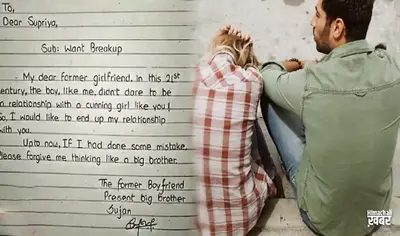 To,
Dear Supriya,
Sub: Want Breakup
My dear former girlfriend. In this 21st
century, the boy, like me, didn't dare to be
a relationship with a cunning girl like you!
So, I would like to end up my relationship
with you.
Upto now, IF I had done some mistake,
Please forgive me thinking like a big brother.
The former Boyfriend
Present big brother
Sujan
हिमाचली
ख़बर